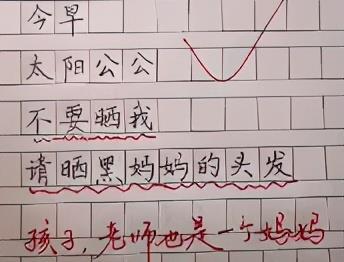 今早
太阳公公
不要晒我
请晒黑妈妈的头发
孩子,老师也是一个妈妈